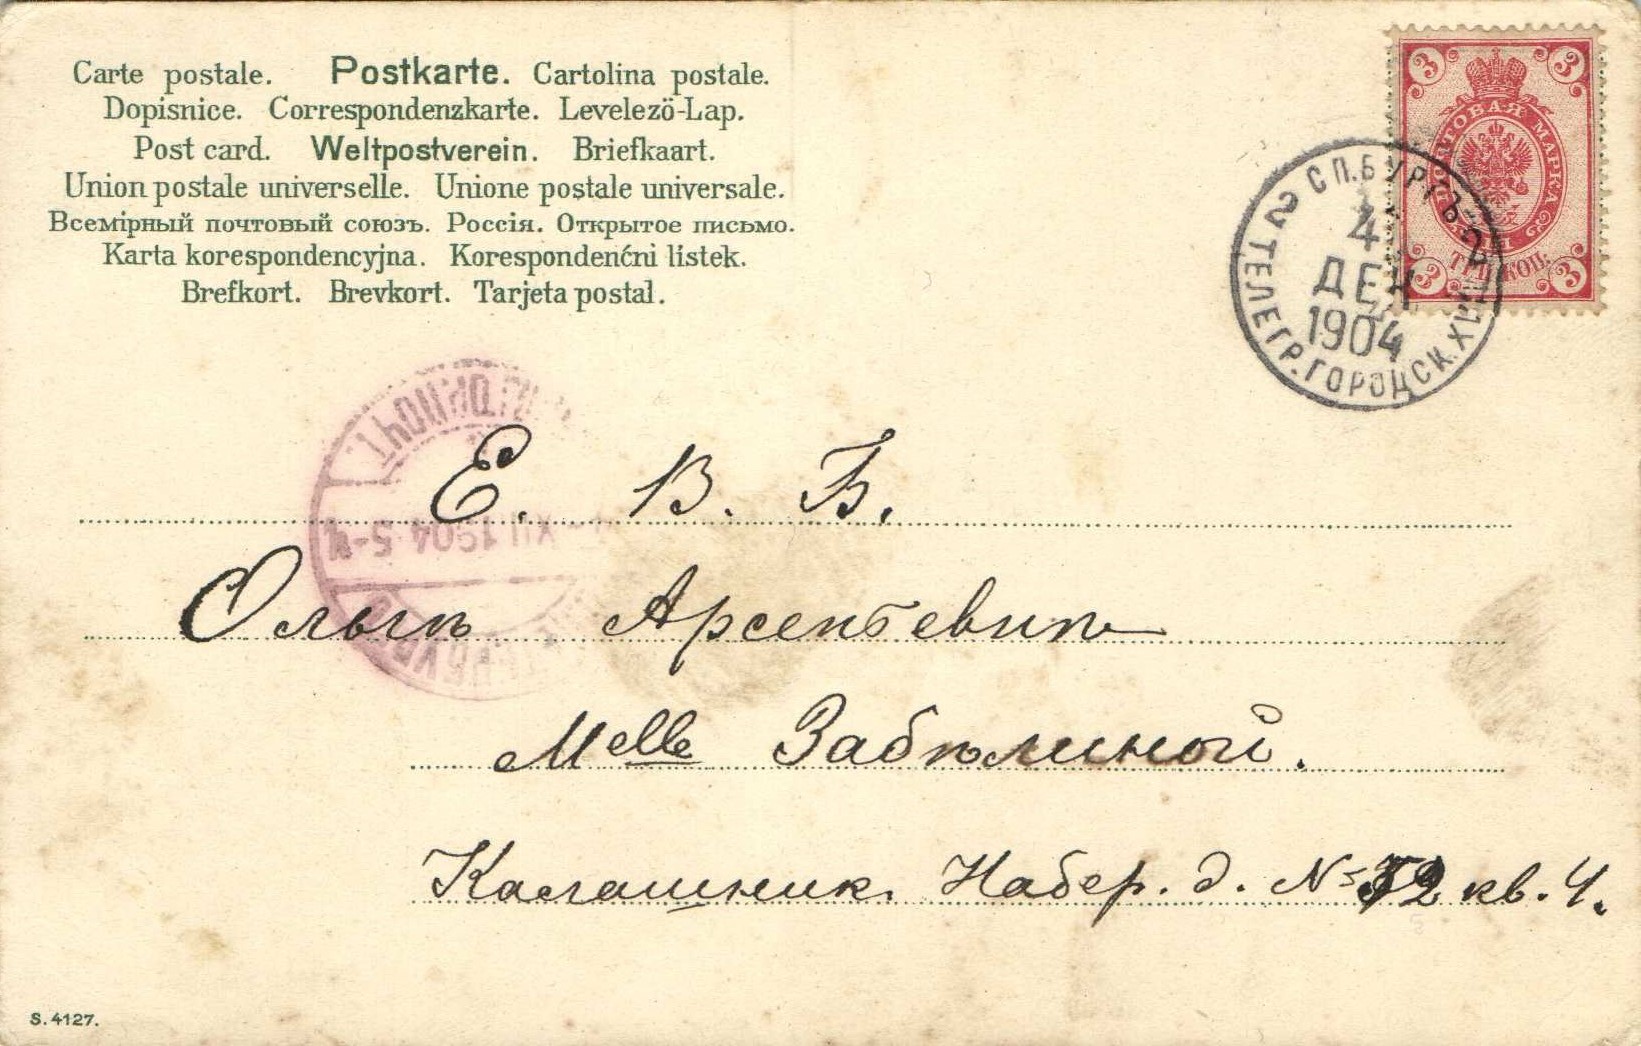 Carte postale. Postkarte. Cartolina postale.
Dopisnice. Correspondenzkarte. Levelező-Lap.
Post card. Weltpostverein. Briefkaart.
Union postale universelle. Unione postale universale.
Всемірный почтовый союзъ. Россія. Открытое письмо.
Karta korespondencyjna. Korespondenćni listek.
Brefkort. Brevkort. Tarjeta postal.
3 3
ПОЧТОВАЯ МАРКА
ТРИ КОП.
3 3
С П.БУРГЪ-2
4
ДЕК
1904
2 ТЕЛЕГР. ГОРОДСК.
XII 1904
Е. В. Б.
Ольгѣ Арсентьевнѣ
Melle Забѣлиной.
Калашник. Набер. д. № 52 кв. 4.
S. 4127.